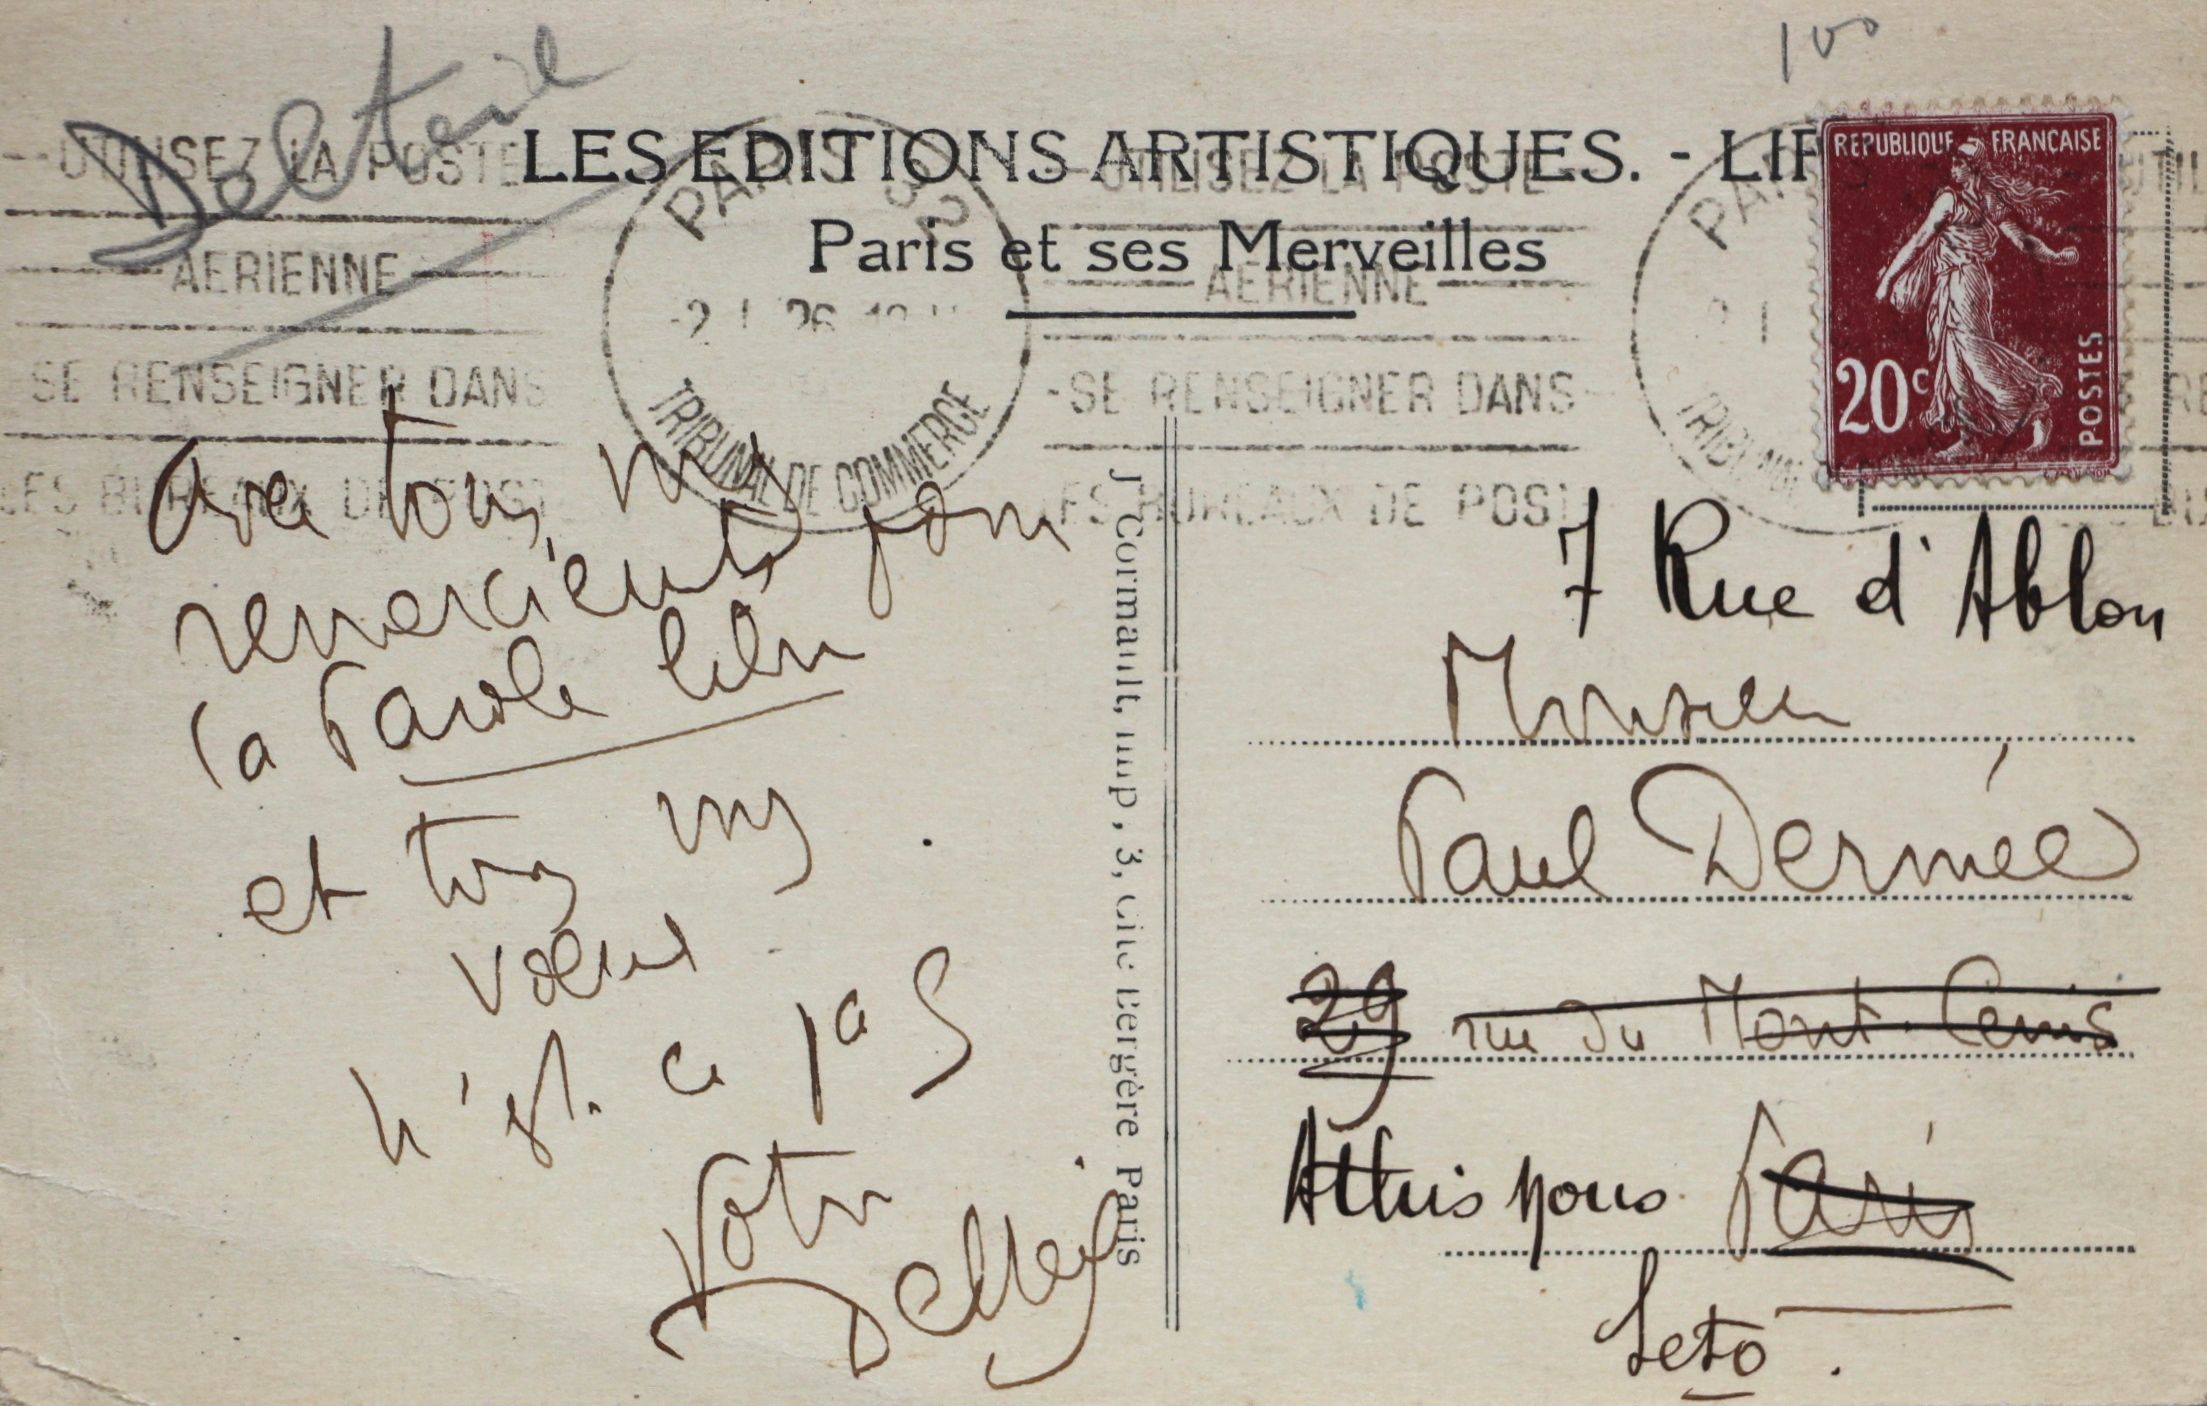 Delteil
100
LES EDITIONS ARTISTIQUES. - LIP
Paris et ses Merveilles
REPUBLIQUE FRANÇAISE
20c
POSTES
UTILISEZ LA POSTE
AERIENNE
SE RENSEIGNER DANS
LES BUREAUX DE POSTE
PARIS
TRIBUNAL DE COMMERCE
UTILISEZ LA POSTE
AERIENNE
-SE RENSEIGNER DANS-
LES BUREAUX DE POST
PARIS
Avec tous mes
remerciements pour
la Parole libre
et tous mes
vœux
n'est-ce pas
Votre
J Cormault, Imp, 3, Cité Bergère Paris
7 Rue d'Ablon
Monsieur
Paul Dermée
29 rue du Mont-Cenis
Athis mons Paris
Seto.